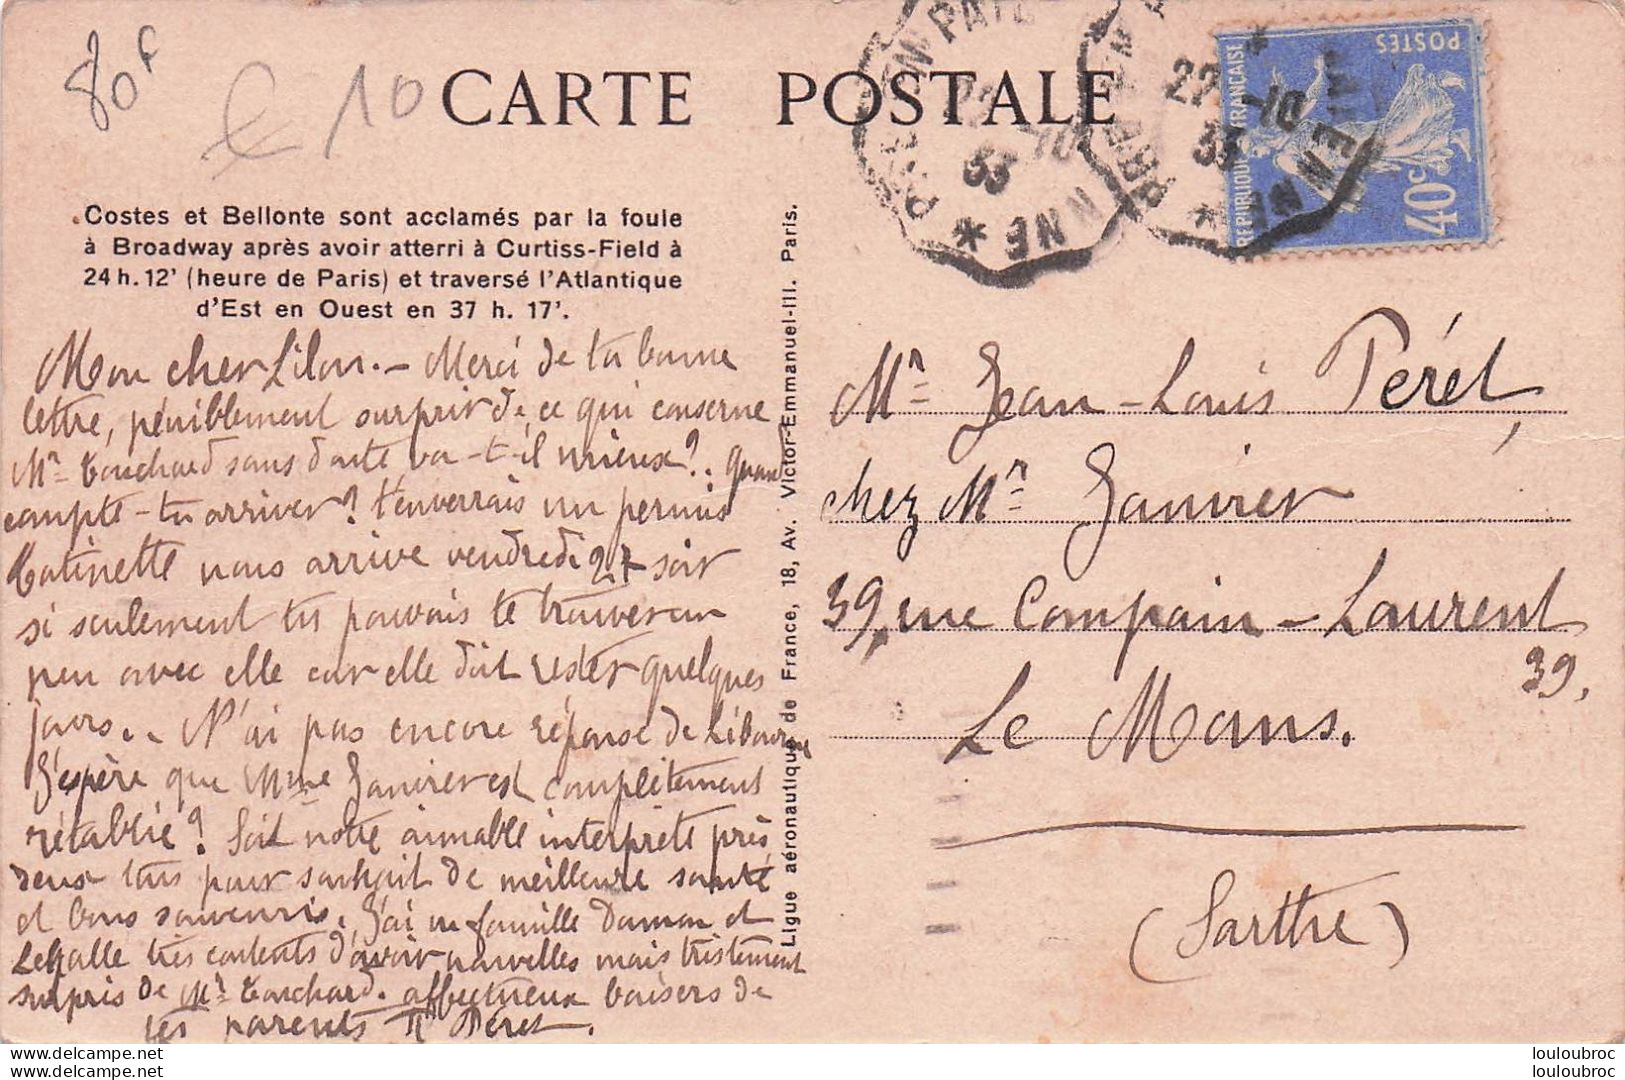 80F
€ 10
CARTE POSTALE
22
-10
33
POSTES
REPUBLIQUE FRANÇAISE
40c
Costes et Bellonte sont acclamés par la foule
à Broadway après avoir atterri à Curtiss-Field à
24 h. 12' (heure de Paris) et traversé l'Atlantique
d'Est en Ouest en 37 h. 17'.
Mon cher Lilou. - Merci de ta bonne
lettre, péniblement surpris de ce qui conserne
Mr Touchard sans doute va-t-il mieux? quand
compte-tu arriver? t'enverrais un permis
Catinette nous arrive vendredi 27 soir
si seulement tu pouvais te trouver un
peu avec elle car elle doit rester quelques
jours.. N'ai pas encore réponse de Libourne
J'espère que Mme Janvier est complètement
rétablie? Soit notre aimable interprète près
deux tous pour souhait de meilleure santé
et bons souvenirs. J'ai vu famille Damon et
Lehalle très contents d'avoir nouvelles mais tristement
surpris de Mr Touchard. affectueux baisers de
tes parents Péret.
Ligue aéronautique de France, 18, Av. Victor-Emmanuel-III. Paris.
Mr Jean-Louis Péret,
chez Mr Janvier
39, rue Compain-Laurent
39.
Le Mans.
(Sarthe)
www.delcampe.com
www.delcampe.com
louloubroc
louloubroc